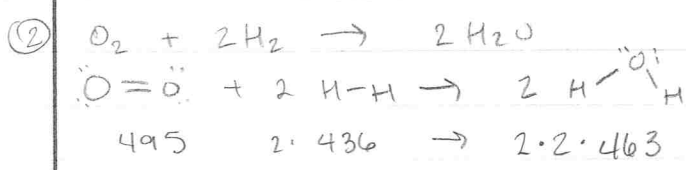 ② O₂ + 2H₂ → 2H₂O
:Ö=Ö: + 2 H-H → 2 H-Ö:-H
495 2·436 → 2·2·463